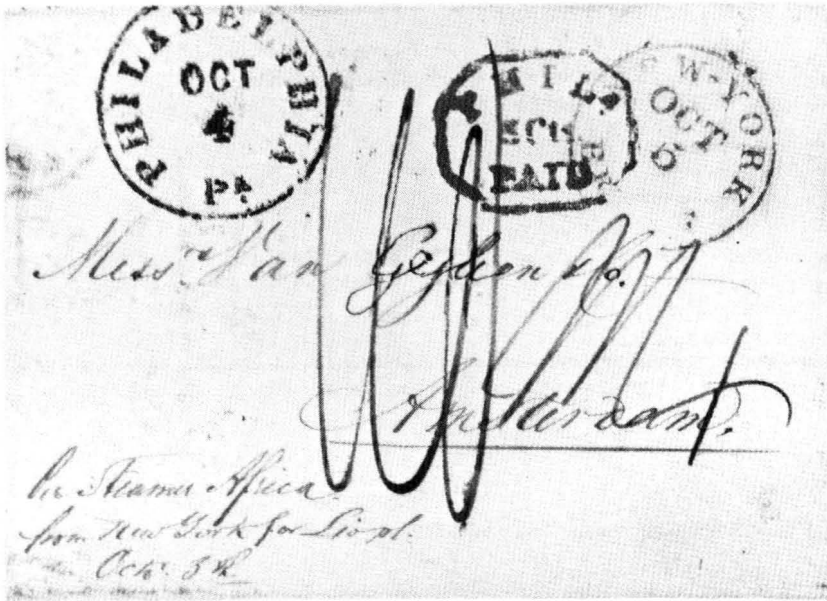 PHILADELPHIA Pa
OCT
4
PHILA.
PAID
NEW-YORK
OCT
Messrs Van & Co.
Amsterdam.
Per Steamer Africa
from New York for Livpl.
Octr. 5th